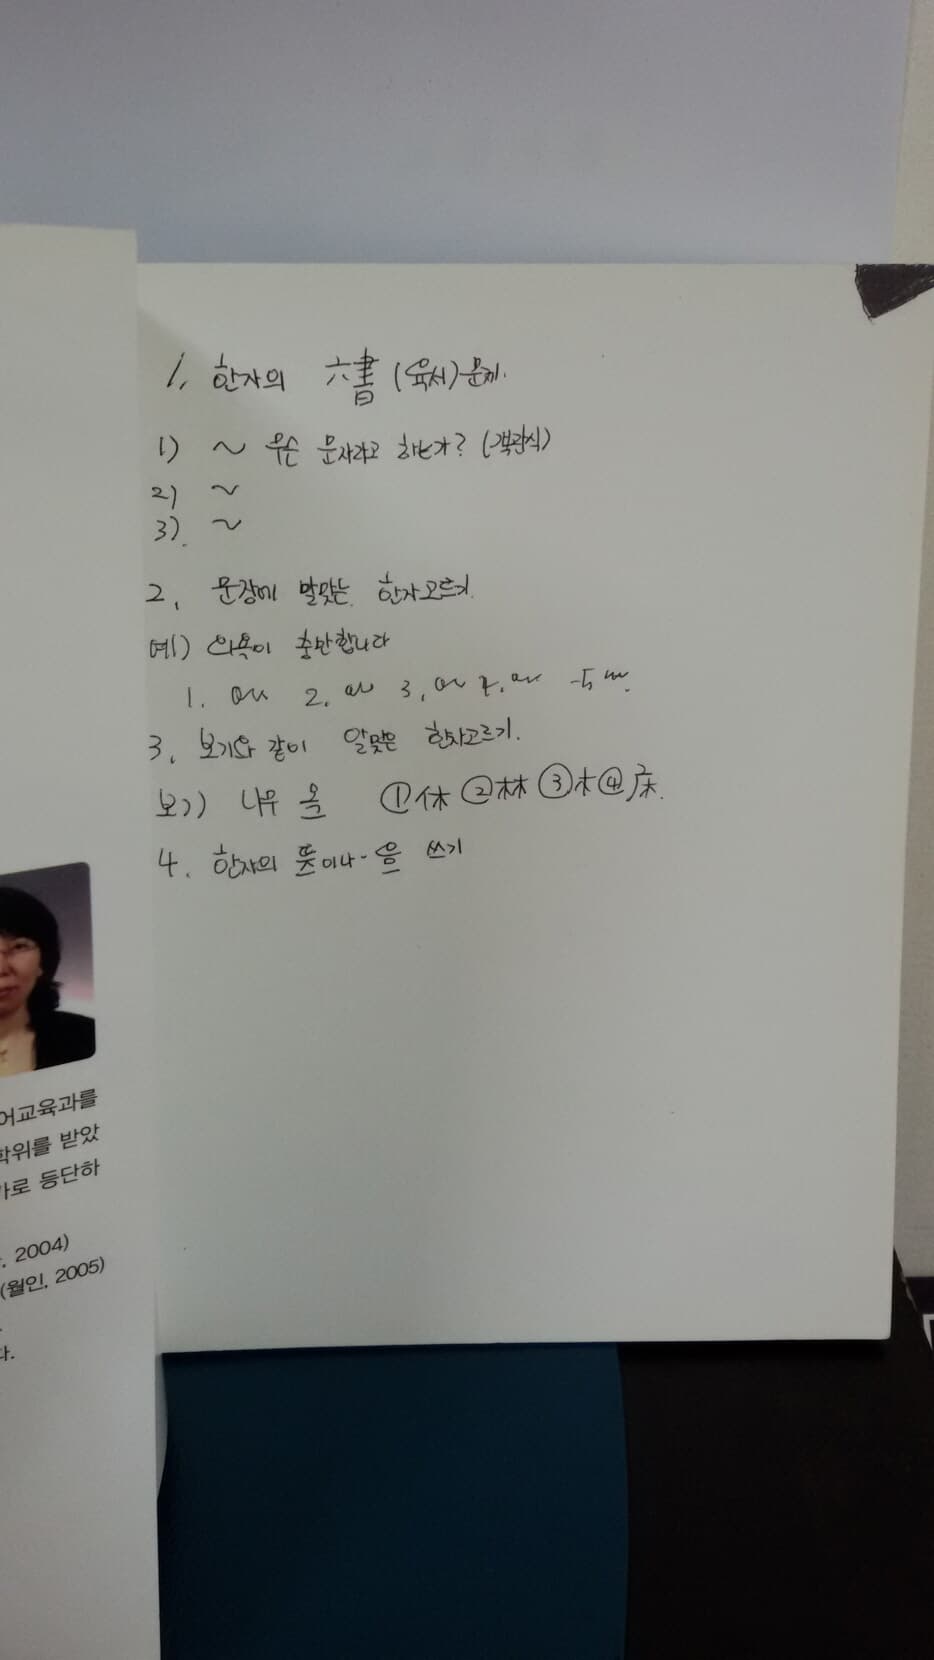 1. 한자의 六書 (육서) 문제.
1) ~ 무슨 문자라고 하는가? (객관식)
2) ~
3). ~
2. 문장에 알맞는 한자고르기.
예) 의욕이 충만합니다
1. 2. 3. 4. 5
3. 보기와 같이 알맞은 한자고르기.
보기) 나무 목 ①休 ②林 ③木 ④床.
4. 한자의 뜻이나 음 쓰기
어교육과를
학위를 받았
가로 등단하
, 2004)
(월인, 2005)
다.